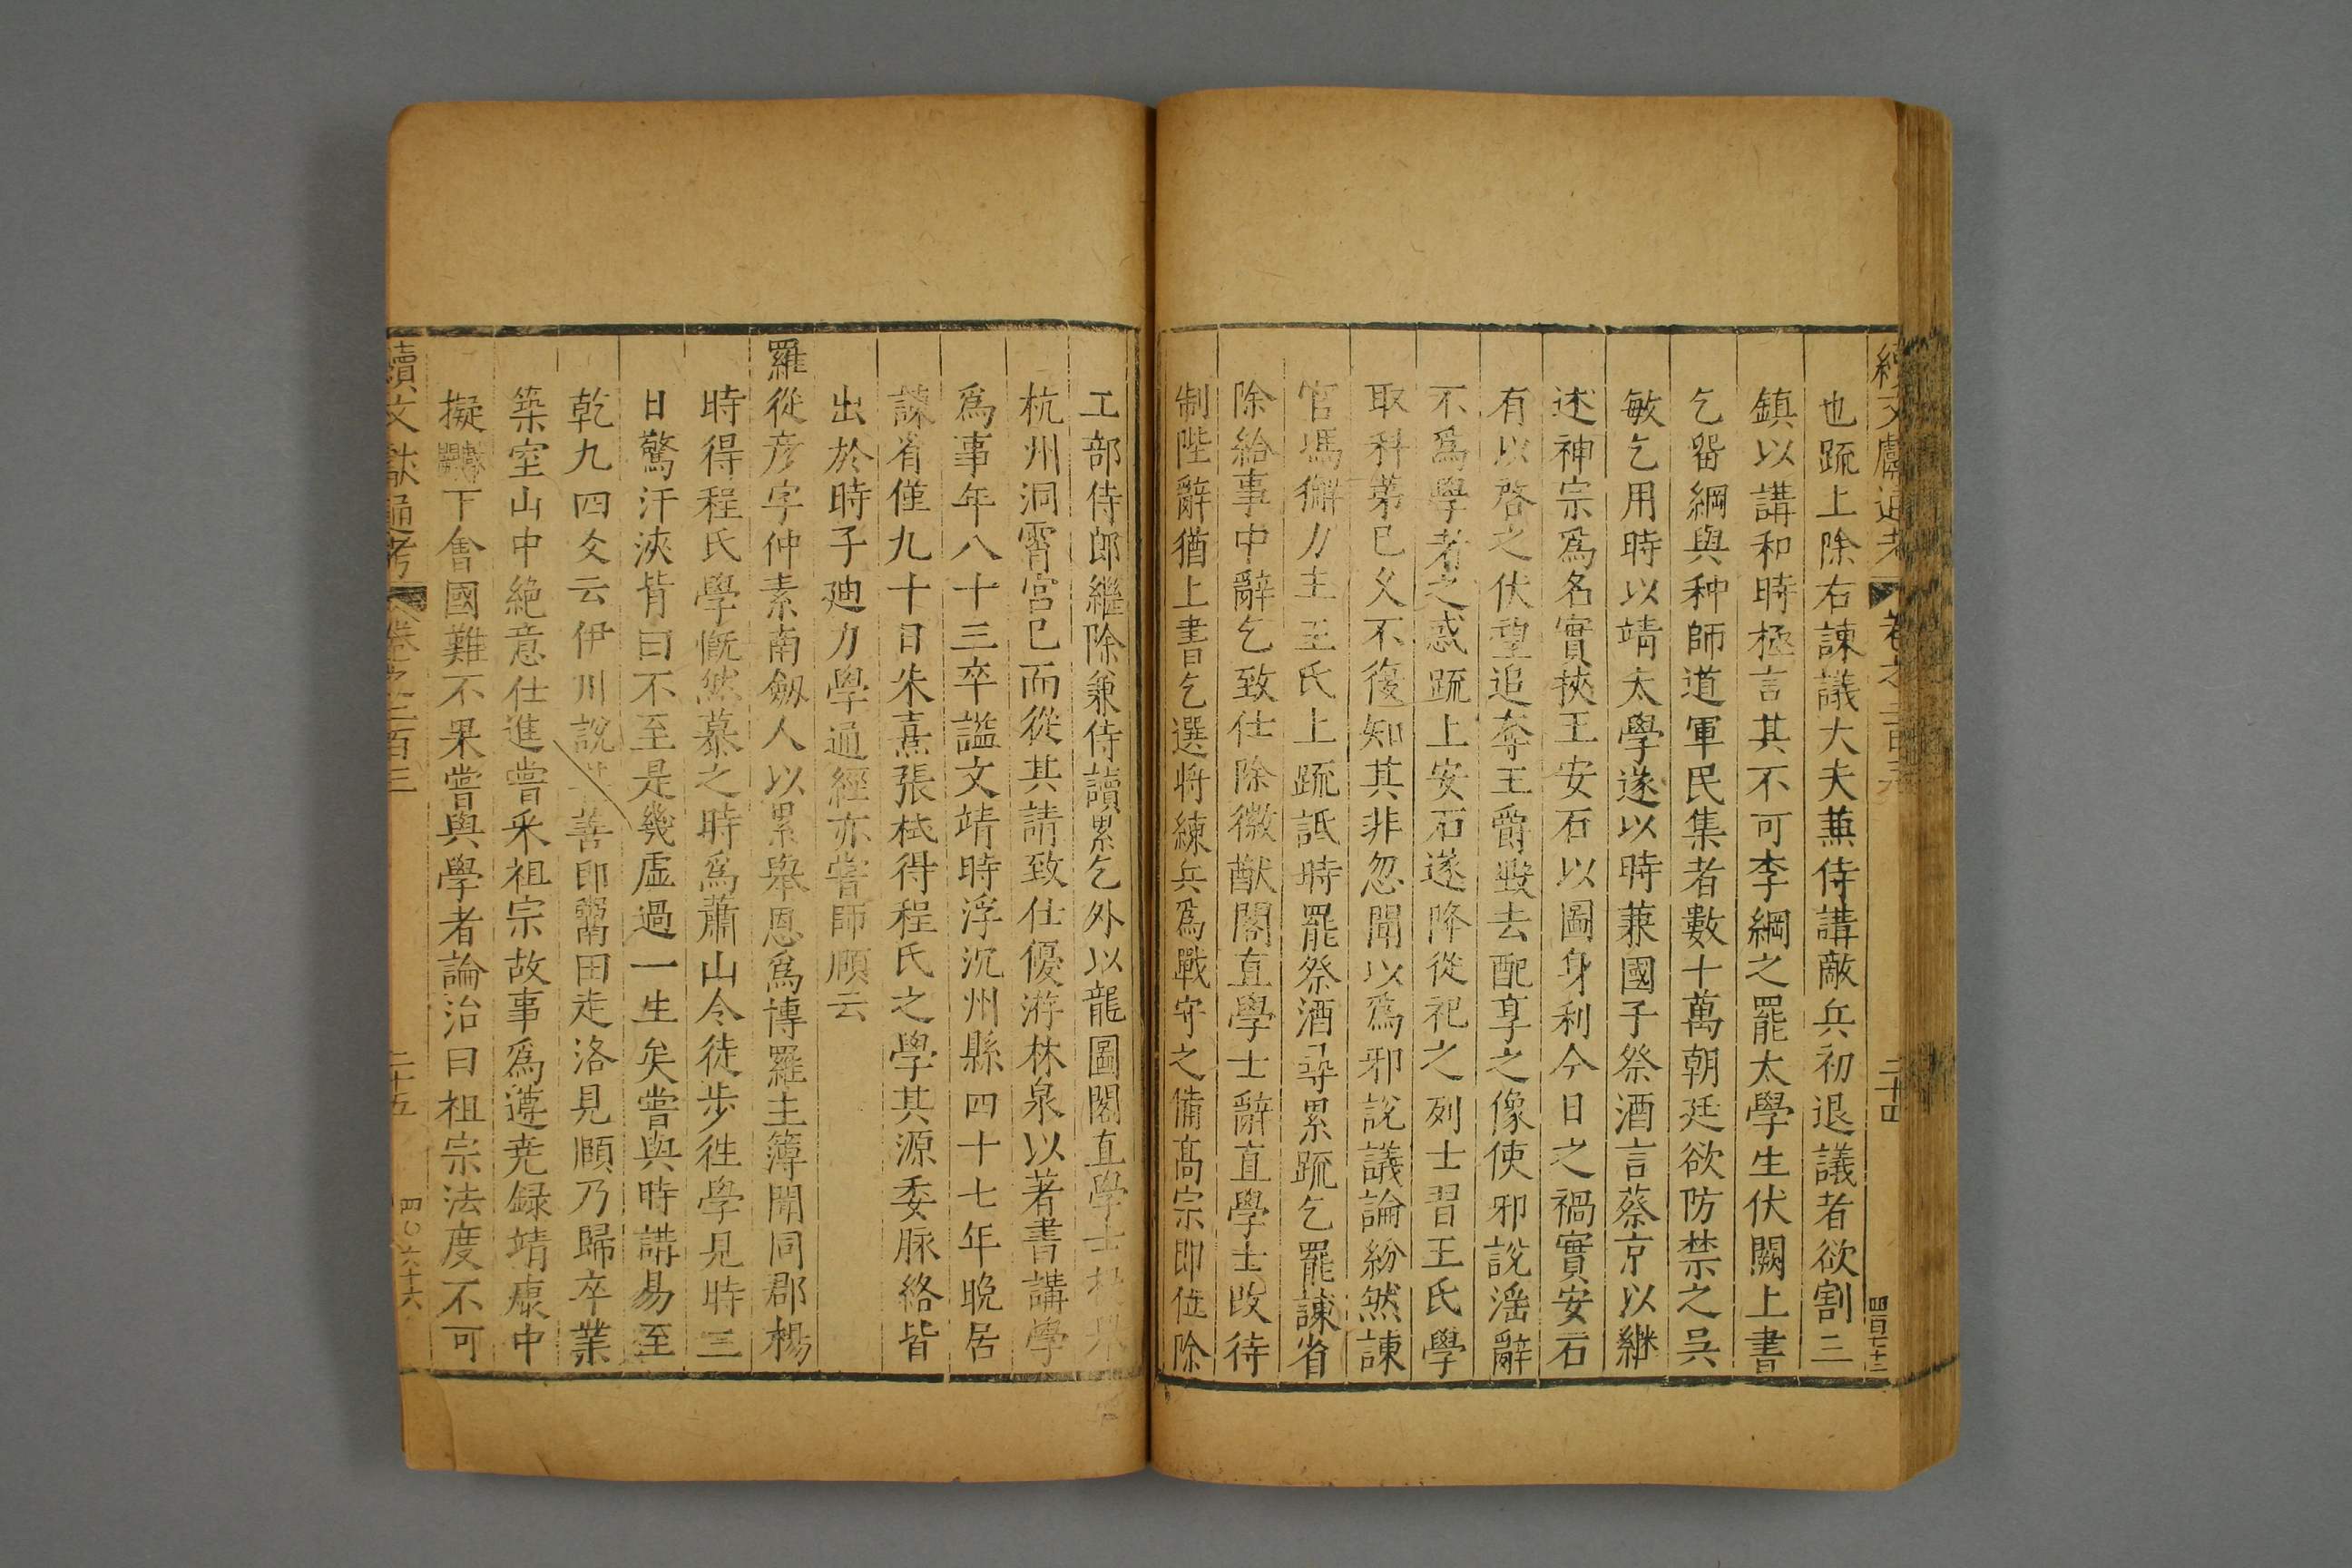 續文獻通考 卷之二百三 二十四 四百七十二
也䟽上除右諌議大夫蕪侍講敵兵初退議者欲割三
鎮以講和時極言其不可李綱之罷太學生伏闕上書
乞畱綱與种師道軍民集者數十萬朝廷欲防禁之吳
敏乞用時以靖太學遂以時蒹國子祭酒言蔡京以継
述神宗爲名實挾王安石以圖身利今日之禍實安石
有以啓之伏望追奪王爵毁去配享之像使邪說滛辭
不爲學者之惑䟽上安石遂降從祀之列士習王氏學
取科苐已乆不復知其非忽聞以爲邪說議論紛然諫
官馮澥力主王氏上䟽詆時罷祭酒尋累䟽乞罷諫省
除給事中辭乞致仕除徽猷閣直學士辭直學士改待
制陛辭猶上書乞選将練兵爲戰守之備髙宗即位除
工部侍郎繼除兼侍讀累乞外以龍圖閣直學士提舉
杭州洞霄宮已而從其請致仕優游林泉以著書講學
爲事年八十三卒諡文靖時浮沉州縣四十七年晚居
諫省僅九十日朱熹張栻得程氏之學其源委脉絡皆
出於時子廸力學通經亦嘗師頤云
羅從彦字仲素南劔人以累舉恩爲博羅主簿聞同郡楊
時得程氏學慨然慕之時爲蕭山令徒步徃學見時三
日驚汗浹背曰不至是幾虛過一生矣嘗與時講易至
乾九四爻云伊川說甚善即鬻田走洛見頤乃歸卒業
築室山中絶意仕進嘗采祖宗故事爲遵堯録靖康中
擬獻闕下會國難不果嘗與學者論治曰祖宗法度不可
續文獻通考 卷之二百三 二十五 四〇六十六